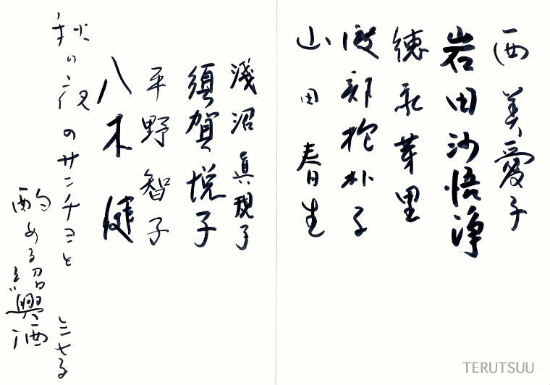 西美愛子
岩田沙悟浄
徳永芽里
渡部抱朴子
山田春生
淺沼眞規子
須賀悦子
平野智子
八木健
秋の夜のサンチヨと
酌める紹興酒
TERUTSUU